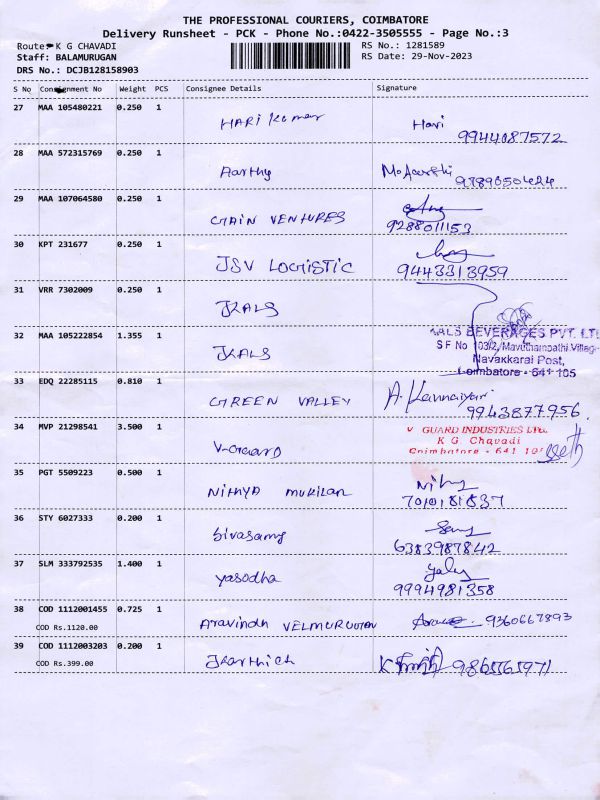 THE PROFESSIONAL COURIERS, COIMBATORE
Delivery Runsheet - PCK - Phone No.:0422-3505555 - Page No.:3
Route: K G CHAVADI
RS No.: 1281589
Staff: BALAMURUGAN
RS Date: 29-Nov-2023
DRS No.: DCJB128158903
S No Consignment No Weight PCS Consignee Details Signature
27 MAA 105480221 0.250 1 HARI Kumar Hari
9944087572
28 MAA 572315769 0.250 1 Aarthy
9789050424
29 MAA 107064580 0.250 1 GAIN VENTURES
9288011153
30 KPT 231677 0.250 1 JSV LOGISTIC
9443313959
31 VRR 7302009 0.250 1 JKALS
32 MAA 105222854 1.355 1 JKALS
BEVERAGES PVT. LTD
S F No 103/2, Mavuthampathi Village
Navakkarai Post,
Coimbatore - 641 105
33 EDQ 22285115 0.810 1 GREEN VALLEY A. Kannaiyan
9943877956
34 MVP 21298541 3.500 1 V-Guard
V GUARD INDUSTRIES Ltd.
K G Chavadi
Coimbatore - 641 105
35 PGT 5509223 0.500 1 NITHYA MUKILAN
7010181837
36 STY 6027333 0.200 1 Sivasamy
6383987842
37 SLM 333792535 1.400 1 yasodha
9994981358
38 COD 1112001455 0.725 1 Aravindh VELMURUGAN 9360667893
COD Rs.1120.00
39 COD 1112003203 0.200 1 Karthick 9865565971
COD Rs.399.00